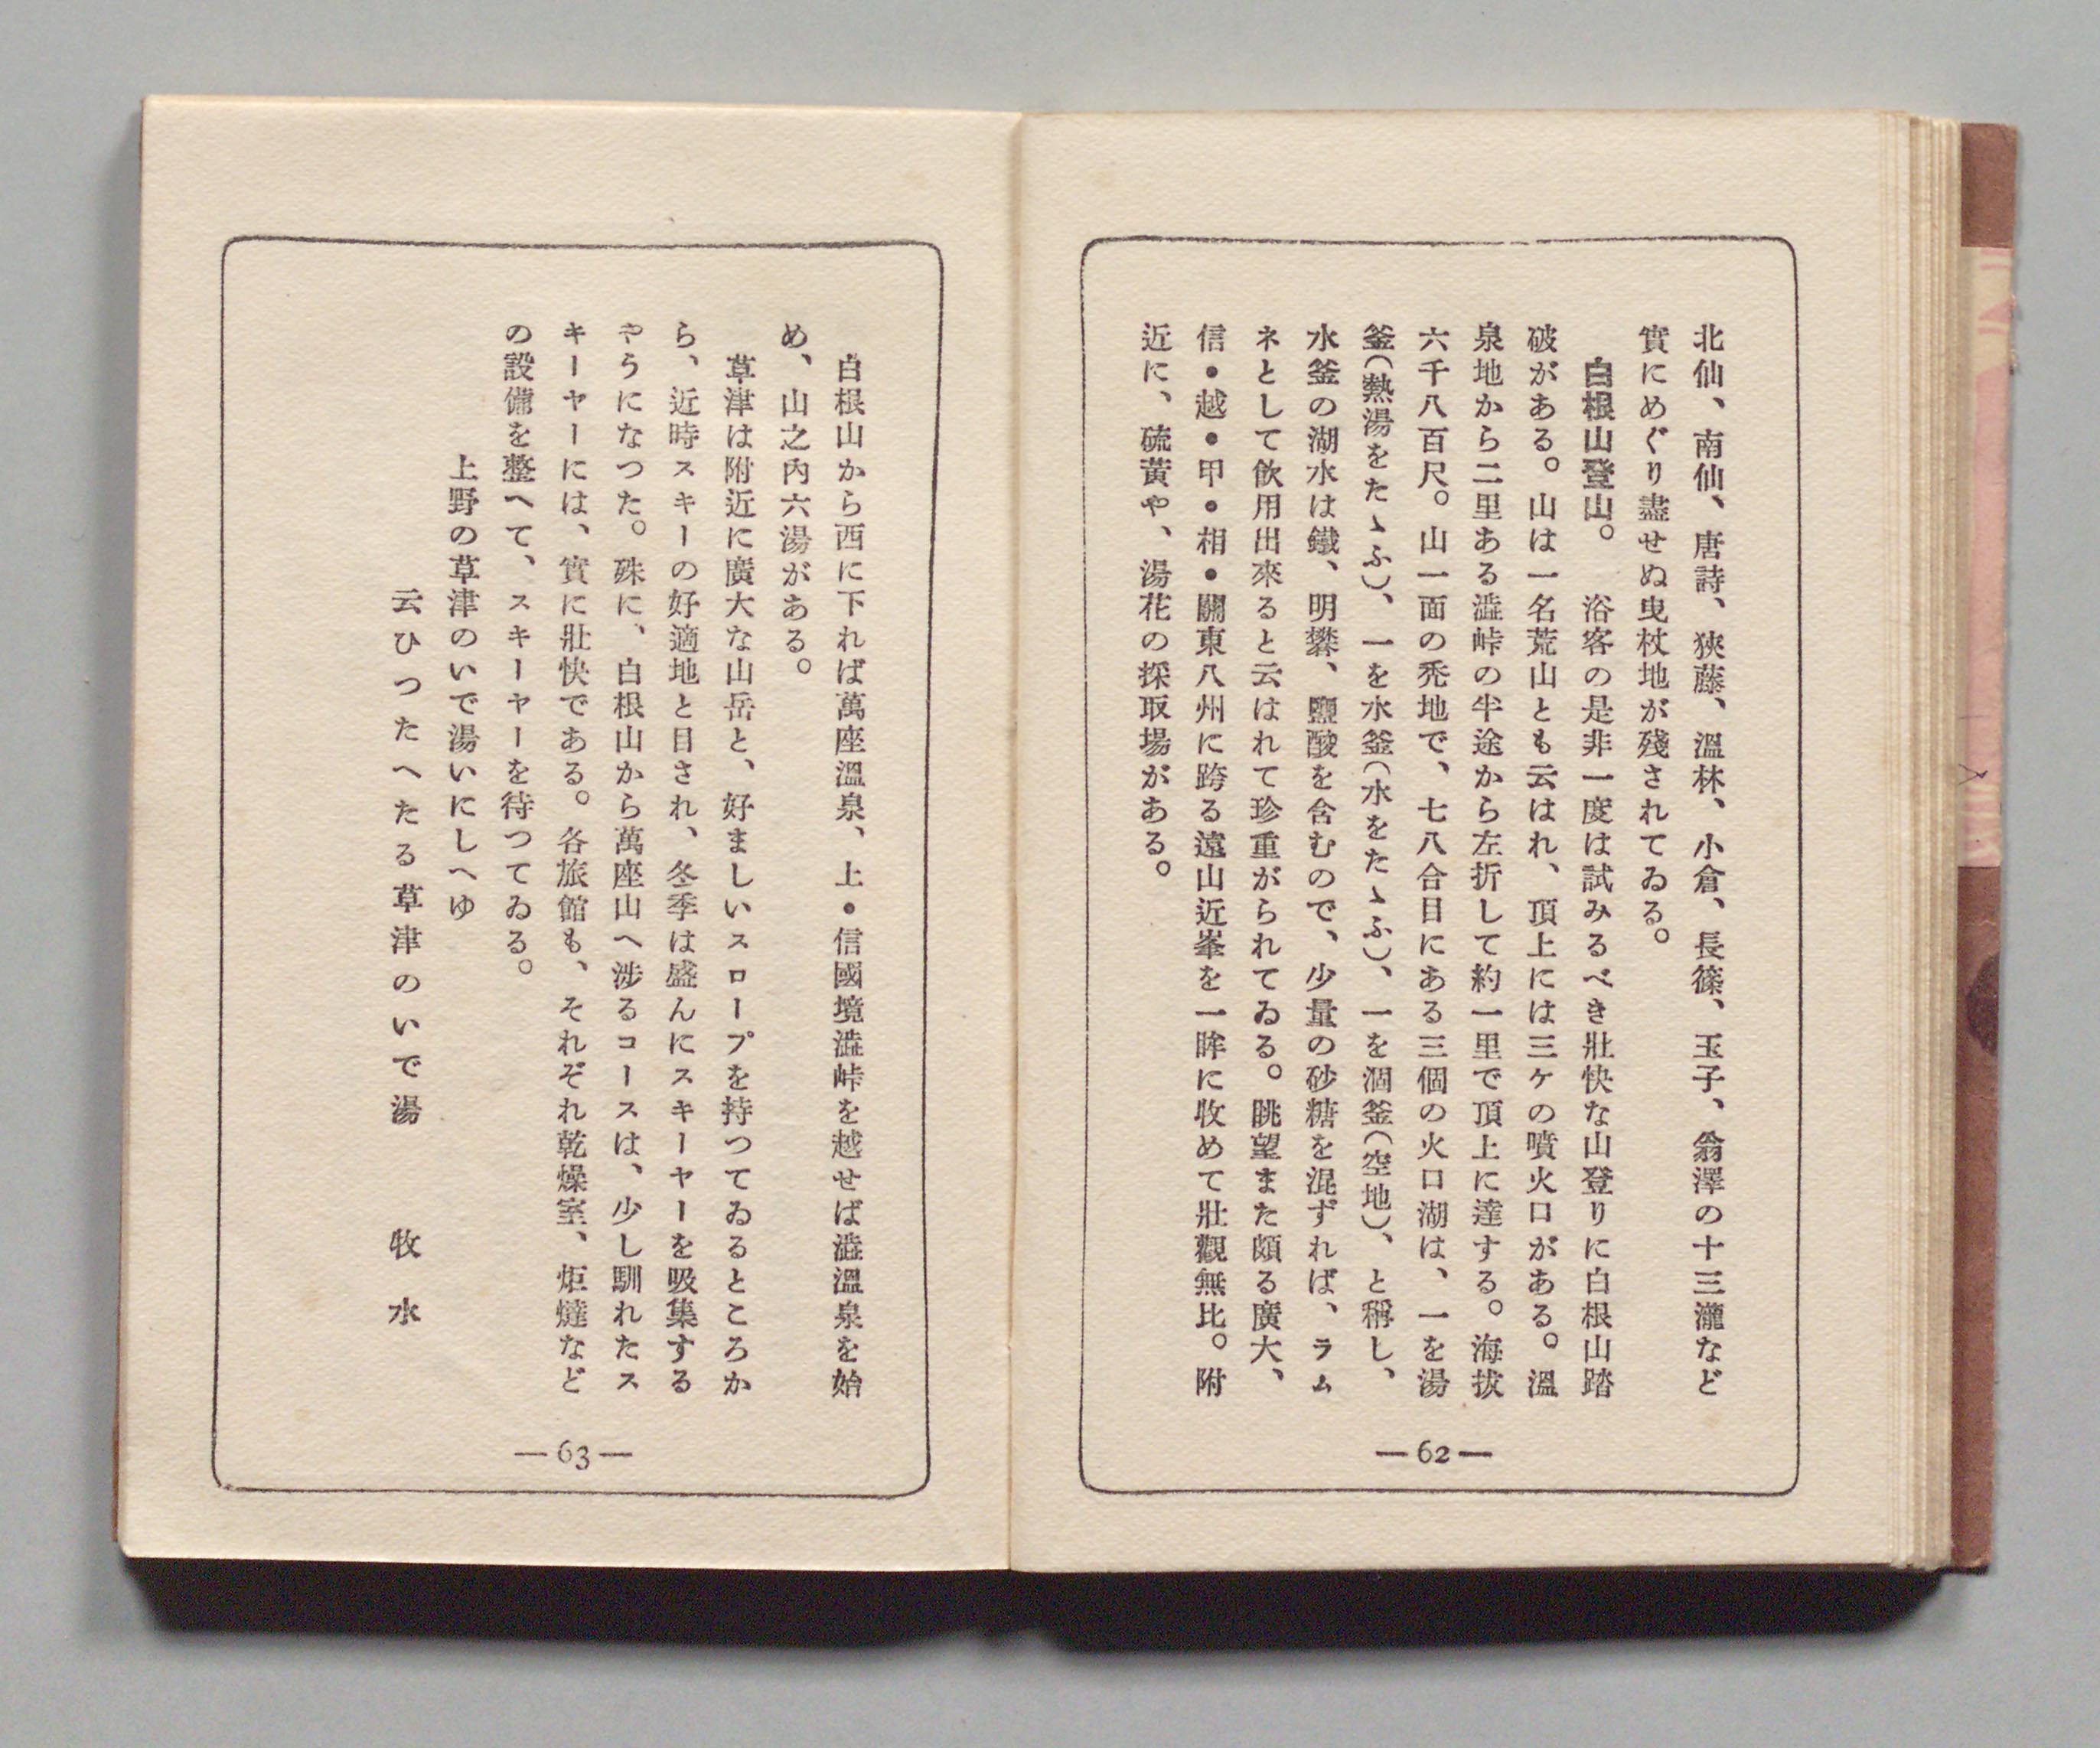 北仙、南仙、唐詩、狹藤、溫林、小倉、長篠、玉子、翁澤の十三瀧など
實にめぐり盡せぬ曳杖地が殘されてゐる。
白根山登山。　浴客の是非一度は試みるべき壯快な山登りに白根山踏
破がある。山は一名荒山とも云はれ、頂上には三ケの噴火口がある。溫
泉地から二里ある澁峠の半途から左折して約一里で頂上に達する。海拔
六千八百尺。山一面の禿地で、七八合目にある三個の火口湖は、一を湯
釜（熱湯をたゝふ）、一を水釜（水をたゝふ）、一を涸釜（空地）、と稱し、
水釜の湖水は鐵、明礬、鹽酸を含むので、少量の砂糖を混ずれば、ラム
ネとして飮用出來ると云はれて珍重がられてゐる。眺望また頗る廣大、
信・越・甲・相・關東八州に跨る遠山近峯を一眸に收めて壯觀無比。附
近に、硫黃や、湯花の採取場がある。
—62—
白根山から西に下れば萬座溫泉、上・信國境澁峠を越せば澁溫泉を始
め、山之內六湯がある。
草津は附近に廣大な山岳と、好ましいスロープを持つてゐるところか
ら、近時スキーの好適地と目され、冬季は盛んにスキーヤーを吸集する
やうになつた。殊に、白根山から萬座山へ涉るコースは、少し馴れたス
キーヤーには、實に壯快である。各旅館も、それぞれ乾燥室、炬燵など
の設備を整へて、スキーヤーを待つてゐる。
上野の草津のいで湯いにしへゆ
云ひつたへたる草津のいで湯　　牧水
—63—